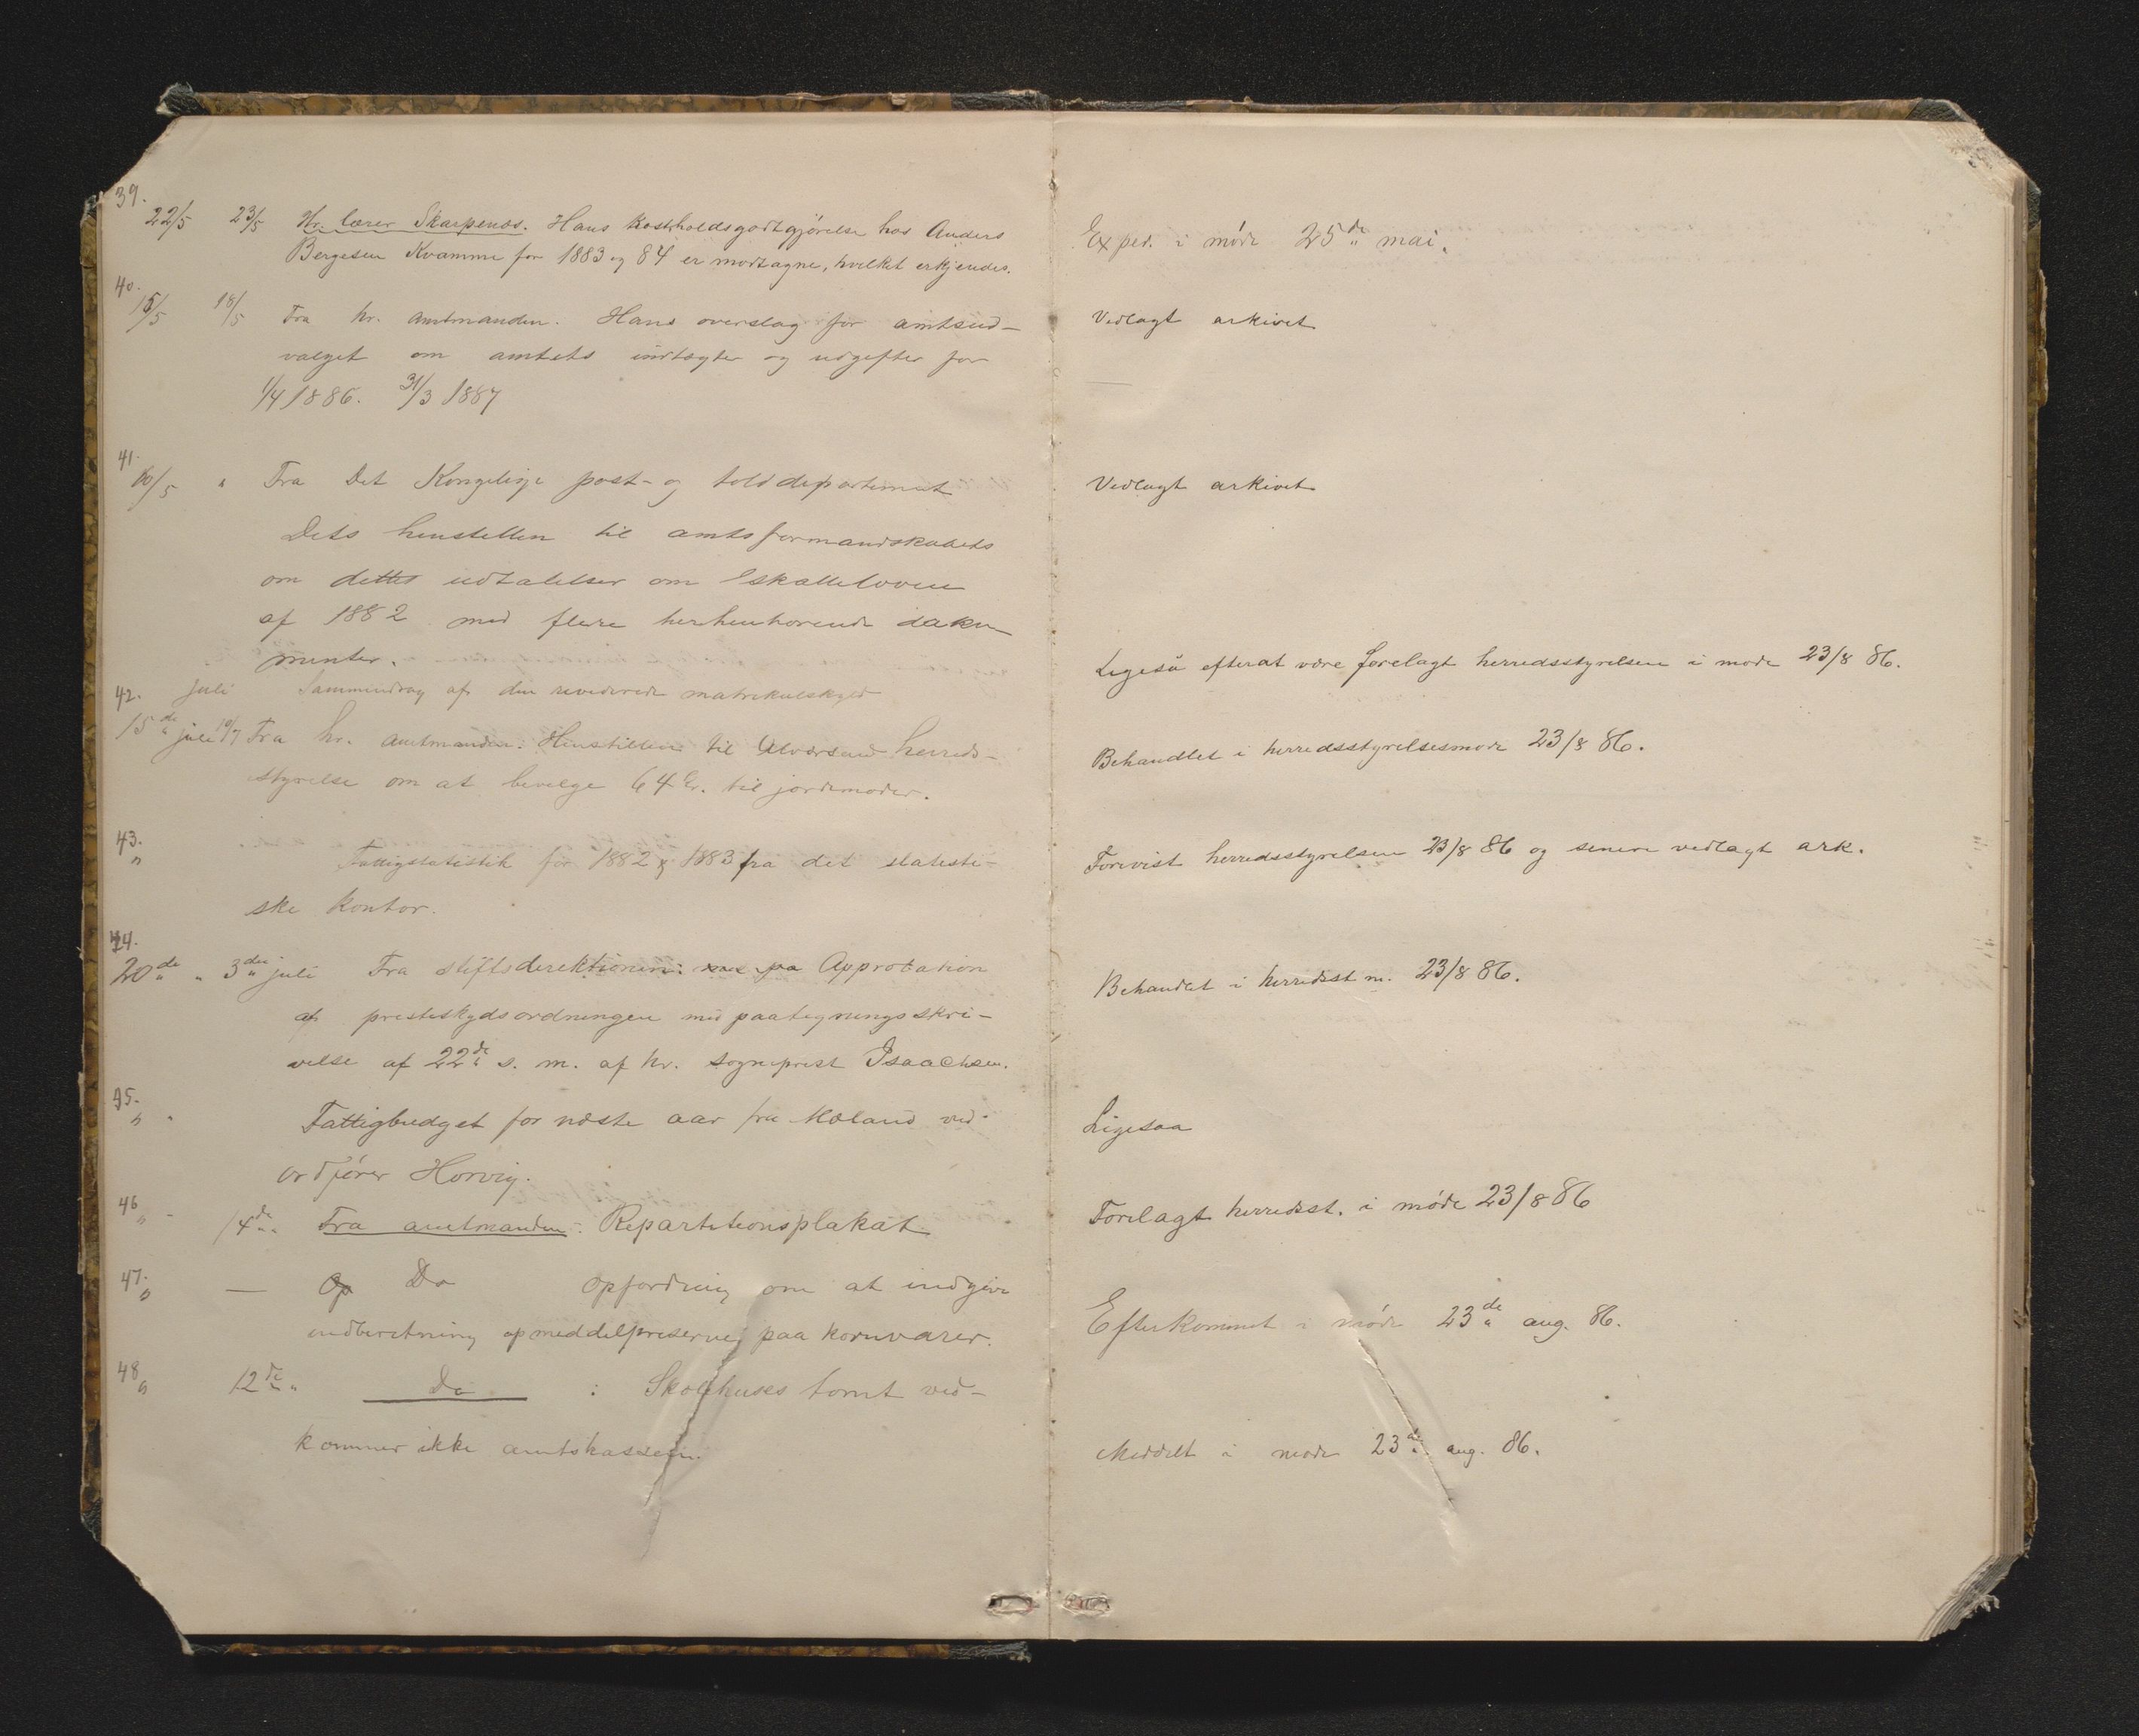 39.
22/5 23/5 Hr. lærer Skarpenes. Hans kostholdsgodtgjörelse hos Anders
Bergesen Kvamme for 1883 og 84 er modtagne, hvilket erkjendes.
40.
15/5 18/5 Fra hr. amtmanden. Hans overslag for amtsud-
valget om amtets indtægter og udgifter for
1/4 1886. 31/3 1887
41.
10/5 " Fra Det Kongelige post- og tolddepartement
Dets henstillen til amtsformandskabets
om dettes udtalelser om skatteloven
af 1882 med flere herhenhørende doku
menter.
42. juli Sammendrag af den reviderede matrikulskyld
15de juli 19/7 Fra hr. amtmanden. Henstillen til Alversund herreds-
styrelse om at bevilge 64 kr. til jordemoder.
43.
" Fattigstatistik for 1882 & 1883 fra det statisti-
ske kontor.
44.
20de " 3die juli Fra stiftsdirektionen: Approbation
af presteskydsordningen med paategningsskri-
velse af 22de s. m. af hr. sogneprest Isaachsen.
45.
" " Fattigbudget for næste aar fra Mæland ved
ordförer Horvig.
46
" - 14de " Fra amtmanden: Repartitionsplakat
47.
" — Op Do Opfordring om at indgive
indberetning op middelpriserne paa kornvarer.
48
" 12te " Do : Skolehuses tomt ved-
kommer ikke amtskassen.
Exped. i möde 25de mai.
Vedlagt arkivet
Vedlagt arkivet
Ligeså efterat være forelagt herredsstyrelsen i møde 23/8 86.
Behandlet i herredsstyrelsesmøde 23/8 86.
Forevist herredsstyrelsen 23/8 86 og senere vedlagt ark.
Behandlet i herredsst m. 23/8 86.
Ligesaa
Forelagt herredsst. i möde 23/8 86
Efterkommet i möde 23de aug. 86.
Meddelt i møde 23de aug. 86.